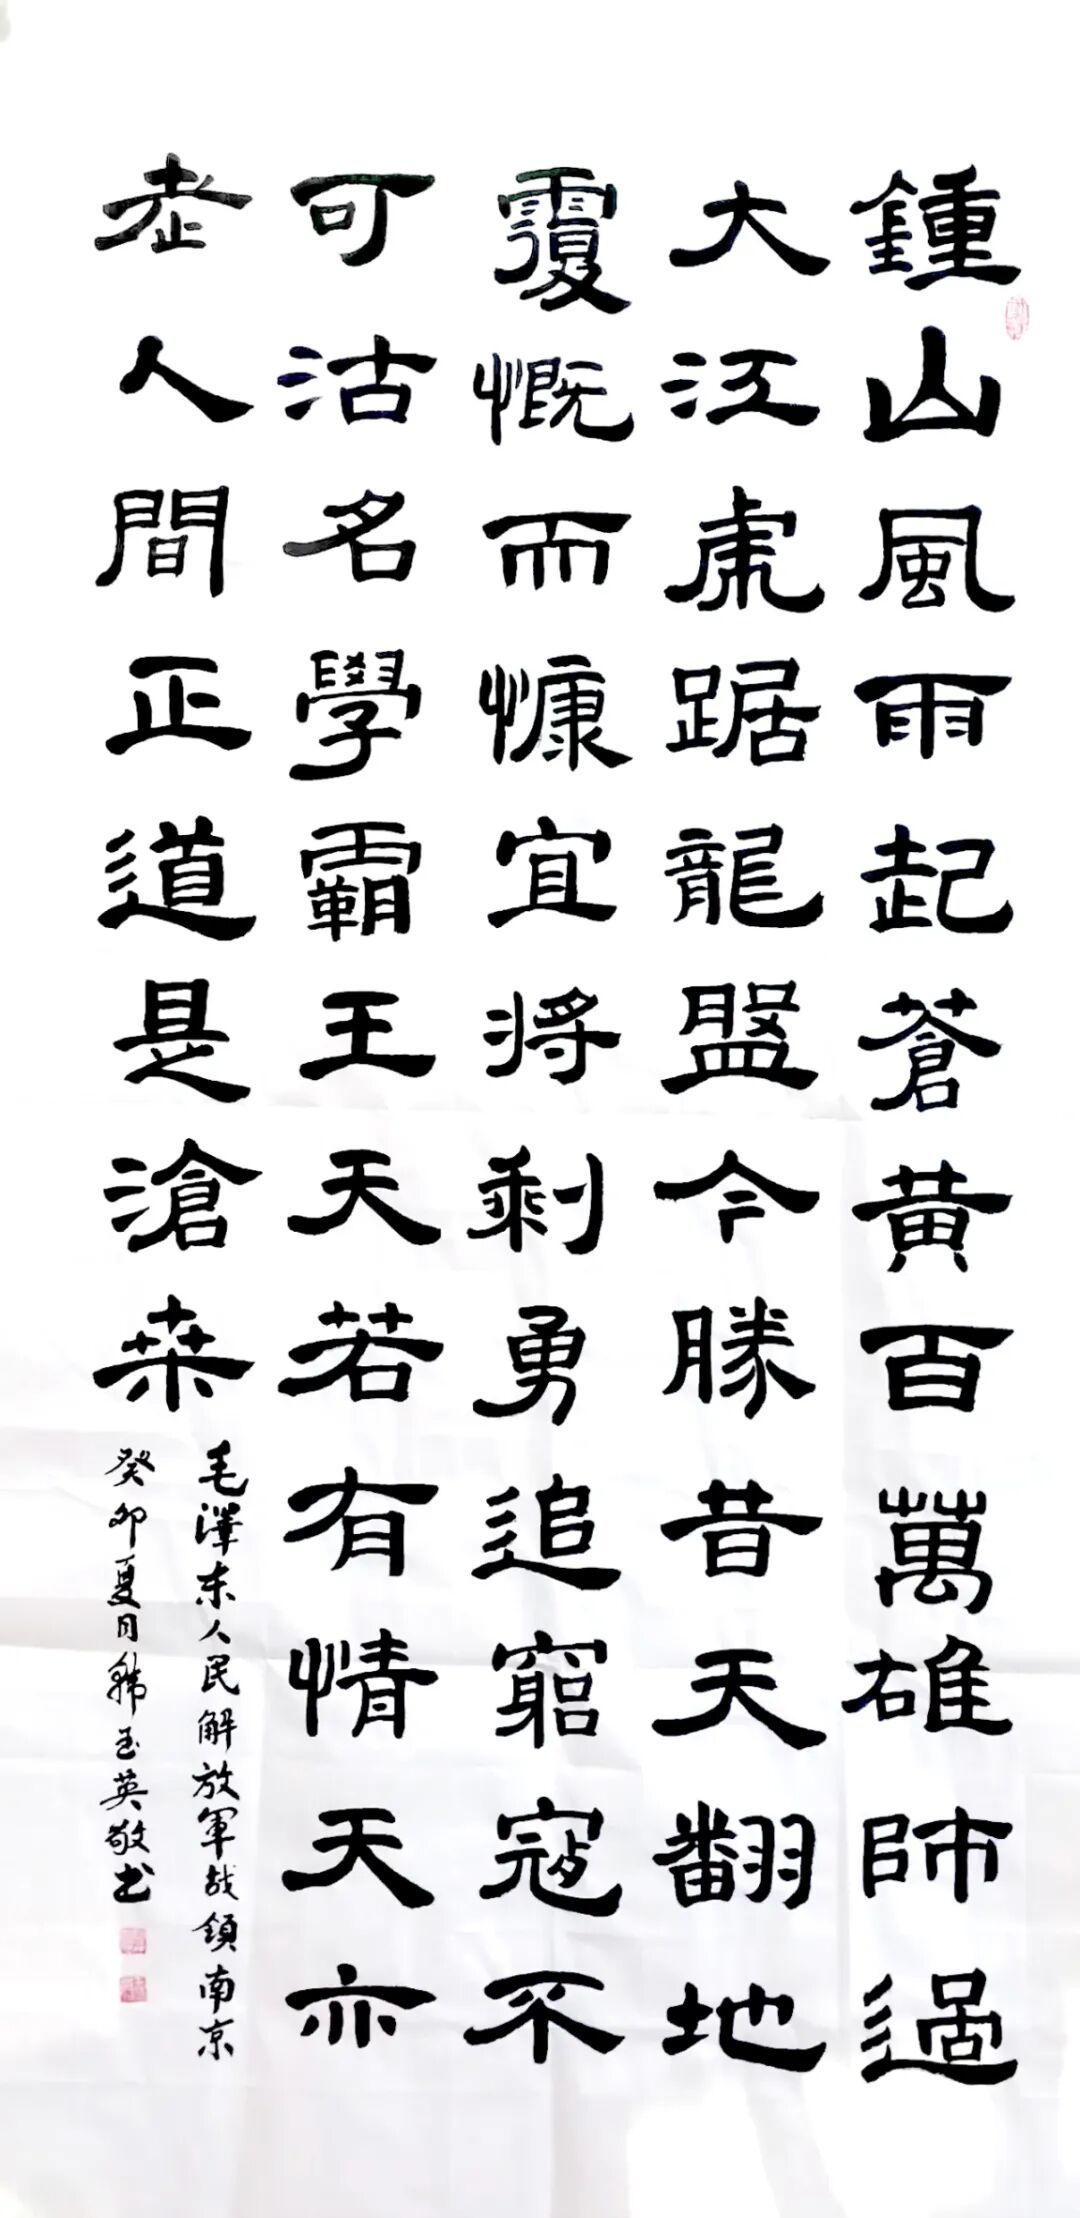 鍾山風雨起蒼黃百萬雄師過
大江虎踞龍盤今勝昔天翻地
覆慨而慷宜將剩勇追窮寇不
可沽名學霸王天若有情天亦
老人間正道是滄桑
毛澤东人民解放軍战領南京
癸卯夏月韩玉英敬书